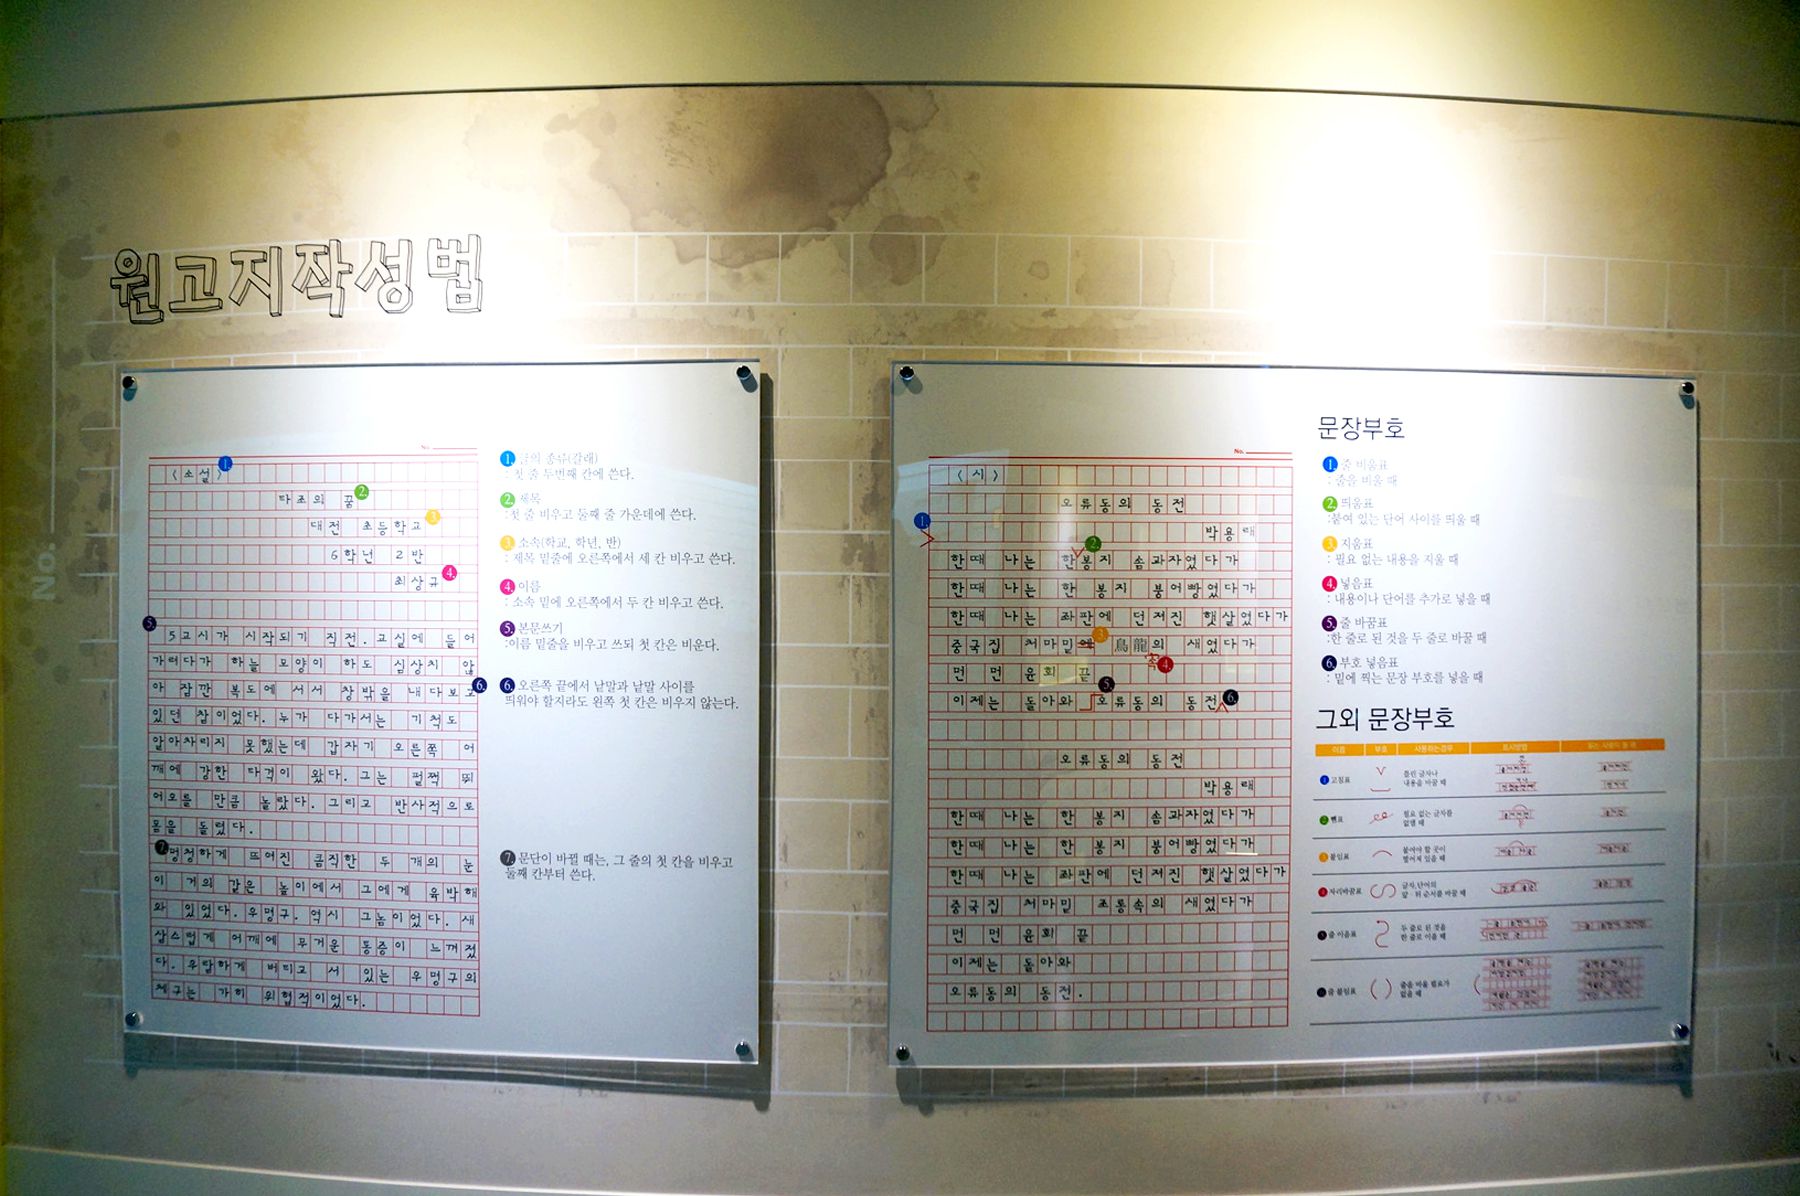 원고지작성법
No.
No.
〈소설〉 1.
타조의 꿈 2.
대전 초등학교 3.
6학년 2반
최상규 4.
5.
5교시가 시작되기 직전. 교실에 들어
가려다가 하늘 모양이 하도 심상치 않
아 잠깐 복도에 서서 창밖을 내다보고 6.
있던 참이었다. 누가 다가서는 기척도
알아차리지 못했는데 갑자기 오른쪽 어
깨에 강한 타격이 왔다. 그는 펄쩍 뛰
어오를 만큼 놀랐다. 그리고 반사적으로
몸을 돌렸다.
7. 멍청하게 뜨어진 큼직한 두 개의 눈
이 거의 같은 높이에서 그에게 육박해
와 있었다. 우멍구. 역시 그놈이었다. 새
삼스럽게 어깨에 무거운 통증이 느껴졌
다. 우람하게 버티고 서 있는 우멍구의
체구는 가히 위협적이었다.
1. 글의 종류(갈래)
: 첫 줄 두번째 칸에 쓴다.
2. 제목
: 첫 줄 비우고 둘째 줄 가운데에 쓴다.
3. 소속(학교, 학년, 반)
: 제목 밑줄에 오른쪽에서 세 칸 비우고 쓴다.
4. 이름
: 소속 밑에 오른쪽에서 두 칸 비우고 쓴다.
5. 본문쓰기
:이름 밑줄을 비우고 쓰되 첫 칸은 비운다.
6. 오른쪽 끝에서 낱말과 낱말 사이를
띄워야 할지라도 왼쪽 첫 칸은 비우지 않는다.
7. 문단이 바뀔 때는, 그 줄의 첫 칸을 비우고
둘째 칸부터 쓴다.
No.
〈시〉
오류동의 동전
1.
박용래
2.
한때 나는 한봉지 솜과자였다가
한때 나는 한 봉지 붕어빵였다가
한때 나는 좌판에 던져진 햇살였다가
중국집 처마밑에 3. 鳥龍의 새였다가
먼 먼 윤회 끝 4.
5.
이제는 돌아와 오류동의 동전 6.
오류동의 동전
박용래
한때 나는 한 봉지 솜과자였다가
한때 나는 한 봉지 붕어빵였다가
한때 나는 좌판에 던져진 햇살였다가
중국집 처마밑 조롱속의 새였다가
먼 먼 윤회 끝
이제는 돌아와
오류동의 동전.
문장부호
1. 줄 비움표
: 줄을 비울 때
2. 띄움표
:붙여 있는 단어 사이를 띄울 때
3. 지움표
: 필요 없는 내용을 지울 때
4. 넣음표
: 내용이나 단어를 추가로 넣을 때
5. 줄 바꿈표
:한 줄로 된 것을 두 줄로 바꿀 때
6. 부호 넣음표
: 밑에 찍는 문장 부호를 넣을 때
그외 문장부호
이름 부호 사용하는경우 표시방법
1 고침표 틀린 글자나
내용을 바꿀 때
2 뺌표 필요 없는 글자를
없앨 때
3 붙임표 붙여야 할 곳이
떨어져 있을 때
4 자리바꿈표 글자, 단어의
앞·뒤 순서를 바꿀 때
5 줄 이음표 두 줄로 된 것을
한 줄로 이을 때
6 줄 붙임표 줄을 비울 필요가
없을 때